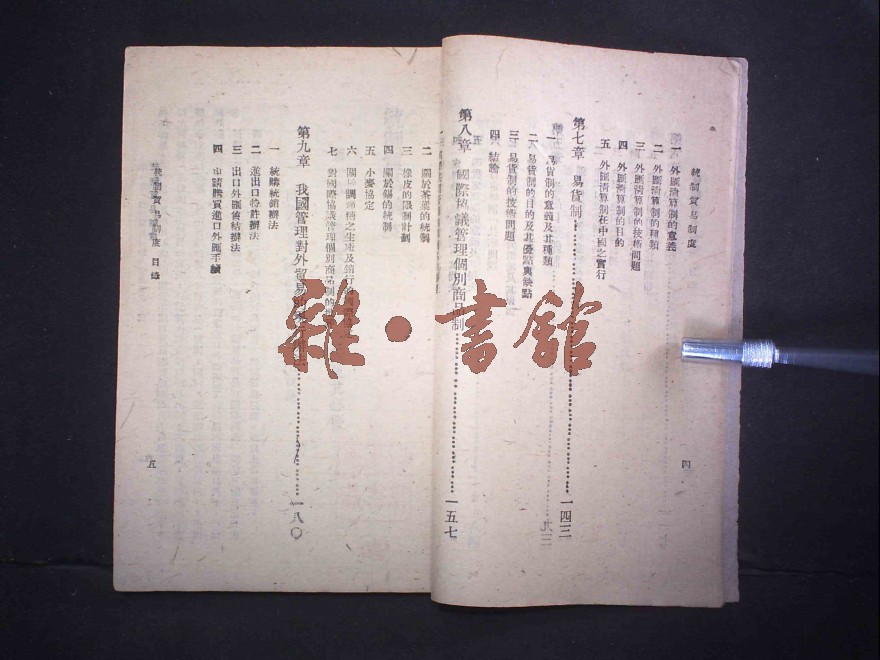 統制貿易制度
四
一 外匯清算制的意義
二 外匯清算制的種類
三 外匯清算制的技術問題
四 外匯清算制的目的
五 外匯清算制在中國之實行
第七章 易貨制……一四三
一 易貨制的意義及其種類
二 易貨制的目的及其優點與缺點
三 易貨制的技術問題
四 結論
第八章 國際協議管理個別商品制……一五七
二 關於茶葉的統制
三 橡皮的限制計劃
四 關於錫的統制
五 小麥協定
六 之生產及銷行的
七 對國際協議管理個別商品制的
第九章 我國管理對外貿易……一八〇
一 統購統銷辦法
二 進出口特許辦法
三 出口外匯售結辦法
四 申請購買進口外匯手續
統制貿易制度 目錄
五
雜·書館